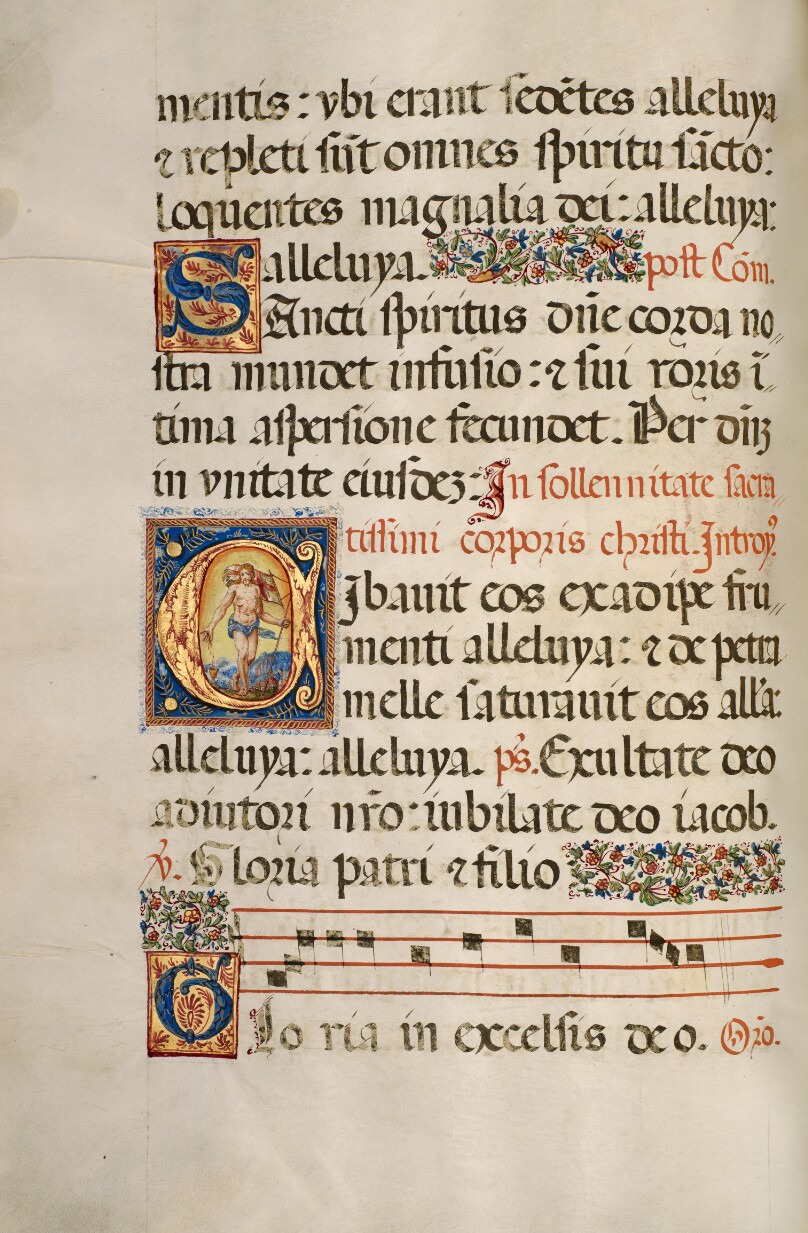 mentis : vbi erant sedētes alleluya
⁊ repleti sūt omnes spiritu sācto:
loquentes magnalia dei: alleluya:
alleluya. post Com̄.
SAncti spiritus dn̄e corda no〃
stra mundet infusio : ⁊ sui ro᷑ris ī〃
tima aspersione fecundet. Per dn̄ꝫ
in vnitate eiusdeꝫ: In sollennitate sacra〃
tissimi corporis christi. Introyꝰ.
CIbauit eos ex adipe fru〃
menti alleluya: ⁊ de petra
melle saturauit eos all̄a:
alleluya: alleluya. ps̄. Exultate deo
adiutori nr̄o: iubilate deo iacob.
℣. Gloria patri ⁊ filio
GLo ria in excelsis de o. Or̄o.